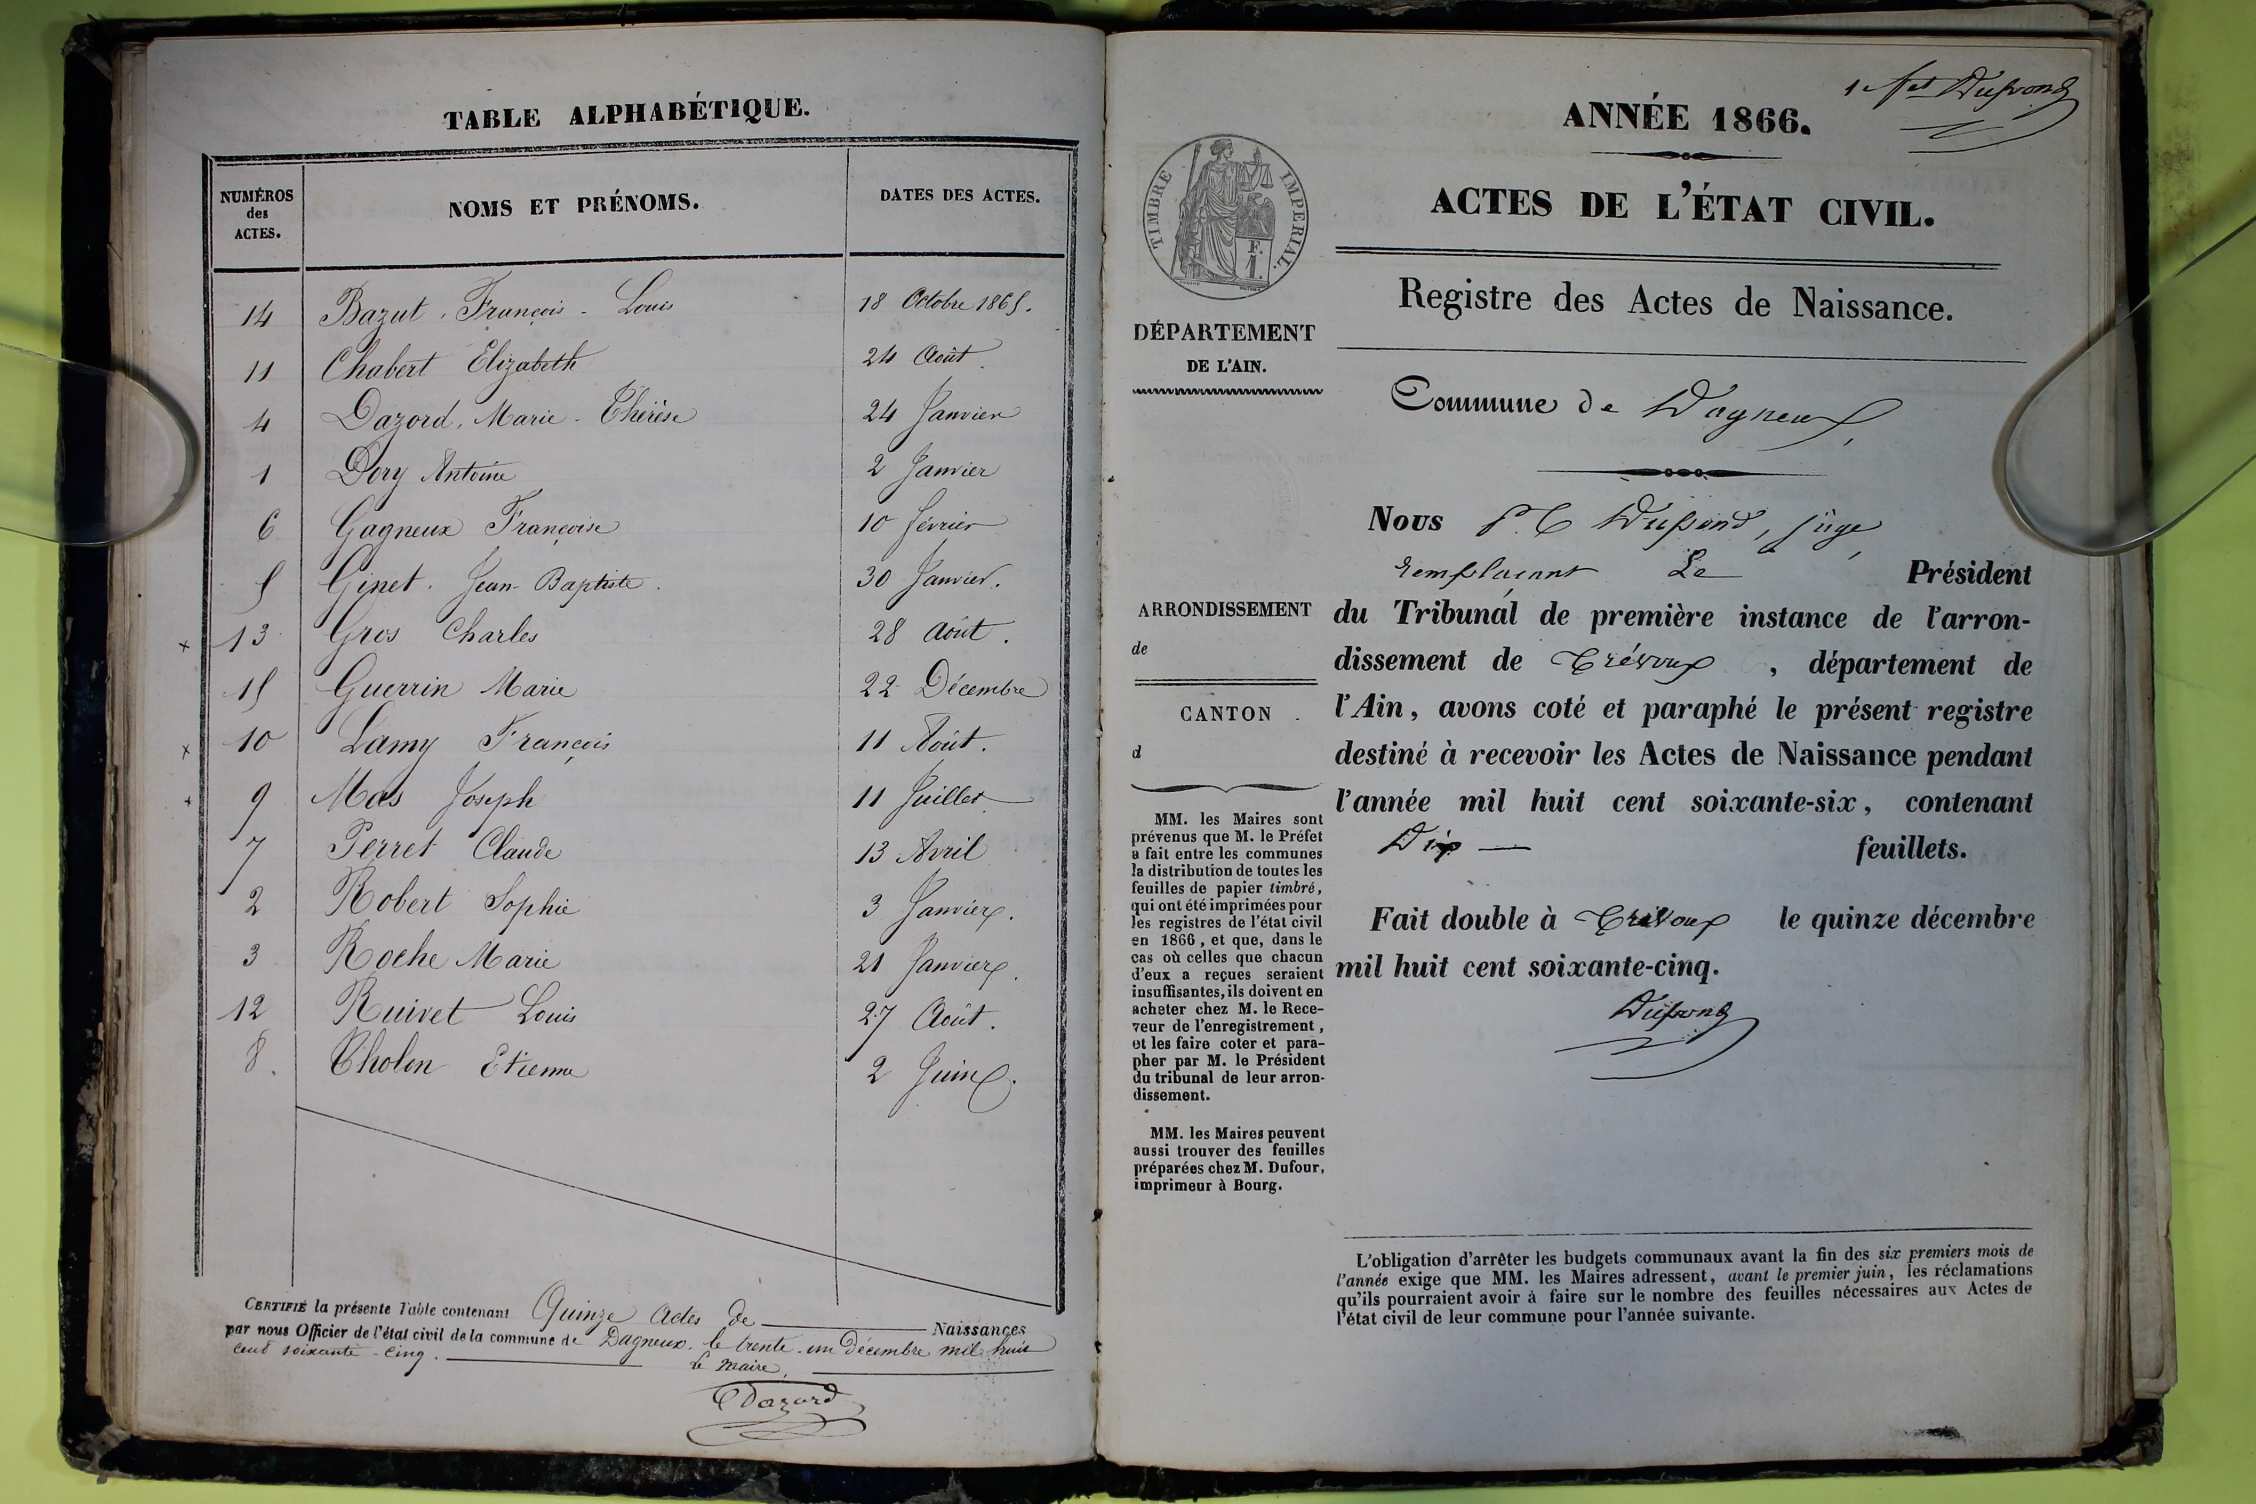 TABLE ALPHABÉTIQUE.
NUMÉROS des ACTES. NOMS ET PRÉNOMS. DATES DES ACTES.
14 Bazut, François-Louis 18 Octobre 1865.
11 Chabert Elizabeth 24 Août
4 Dazord, Marie-Thérèse 24 Janvier
1 Dory Antoine 2 Janvier
6 Gagneux Françoise 10 Février
5 Ginet. Jean-Baptiste. 30 Janvier.
x 13 Gros Charles 28 Août.
15 Guerrin Marie 22 Décembre
x 10 Lamy François 11 Août.
x 9 Mas Joseph 11 Juillet
7 Perret Claude 13 Avril
2 Robert Sophie 3 Janvier.
3 Roche Marie 21 Janvier.
12 Ruivet Louis 27 Août.
8. Tholon Etienne 2 Juin.
CERTIFIÉ la présente Table contenant Quinze Actes de Naissances
par nous Officier de l'état civil de la commune de Dagneux. le trente-un Décembre mil huit
cent soixante-cinq.
le maire,
Dazord
1er ft Dupond
ANNÉE 1866.
ACTES DE L'ÉTAT CIVIL.
TIMBRE IMPERIAL.
F.
1.
Registre des Actes de Naissance.
DÉPARTEMENT
DE L'AIN.
Commune de Dagneux,
Nous Dupond, juge,
remplaçant Le Président
du Tribunal de première instance de l'arron-
dissement de Trévoux, département de
l'Ain, avons coté et paraphé le présent registre
destiné à recevoir les Actes de Naissance pendant
l'année mil huit cent soixante-six, contenant
Dix — feuillets.
Fait double à Trévoux le quinze décembre
mil huit cent soixante-cinq.
Dupond
ARRONDISSEMENT
de
CANTON
d
MM. les Maires sont
prévenus que M. le Préfet
a fait entre les communes
la distribution de toutes les
feuilles de papier timbré,
qui ont été imprimées pour
les registres de l'état civil
en 1866, et que, dans le
cas où celles que chacun
d'eux a reçues seraient
insuffisantes, ils doivent en
acheter chez M. le Rece-
veur de l'enregistrement,
et les faire coter et para-
pher par M. le Président
du tribunal de leur arron-
dissement.
MM. les Maires peuvent
aussi trouver des feuilles
préparées chez M. Dufour,
imprimeur à Bourg.
L'obligation d'arrêter les budgets communaux avant la fin des six premiers mois de
l'année exige que MM. les Maires adressent, avant le premier juin, les réclamations
qu'ils pourraient avoir à faire sur le nombre des feuilles nécessaires aux Actes de
l'état civil de leur commune pour l'année suivante.